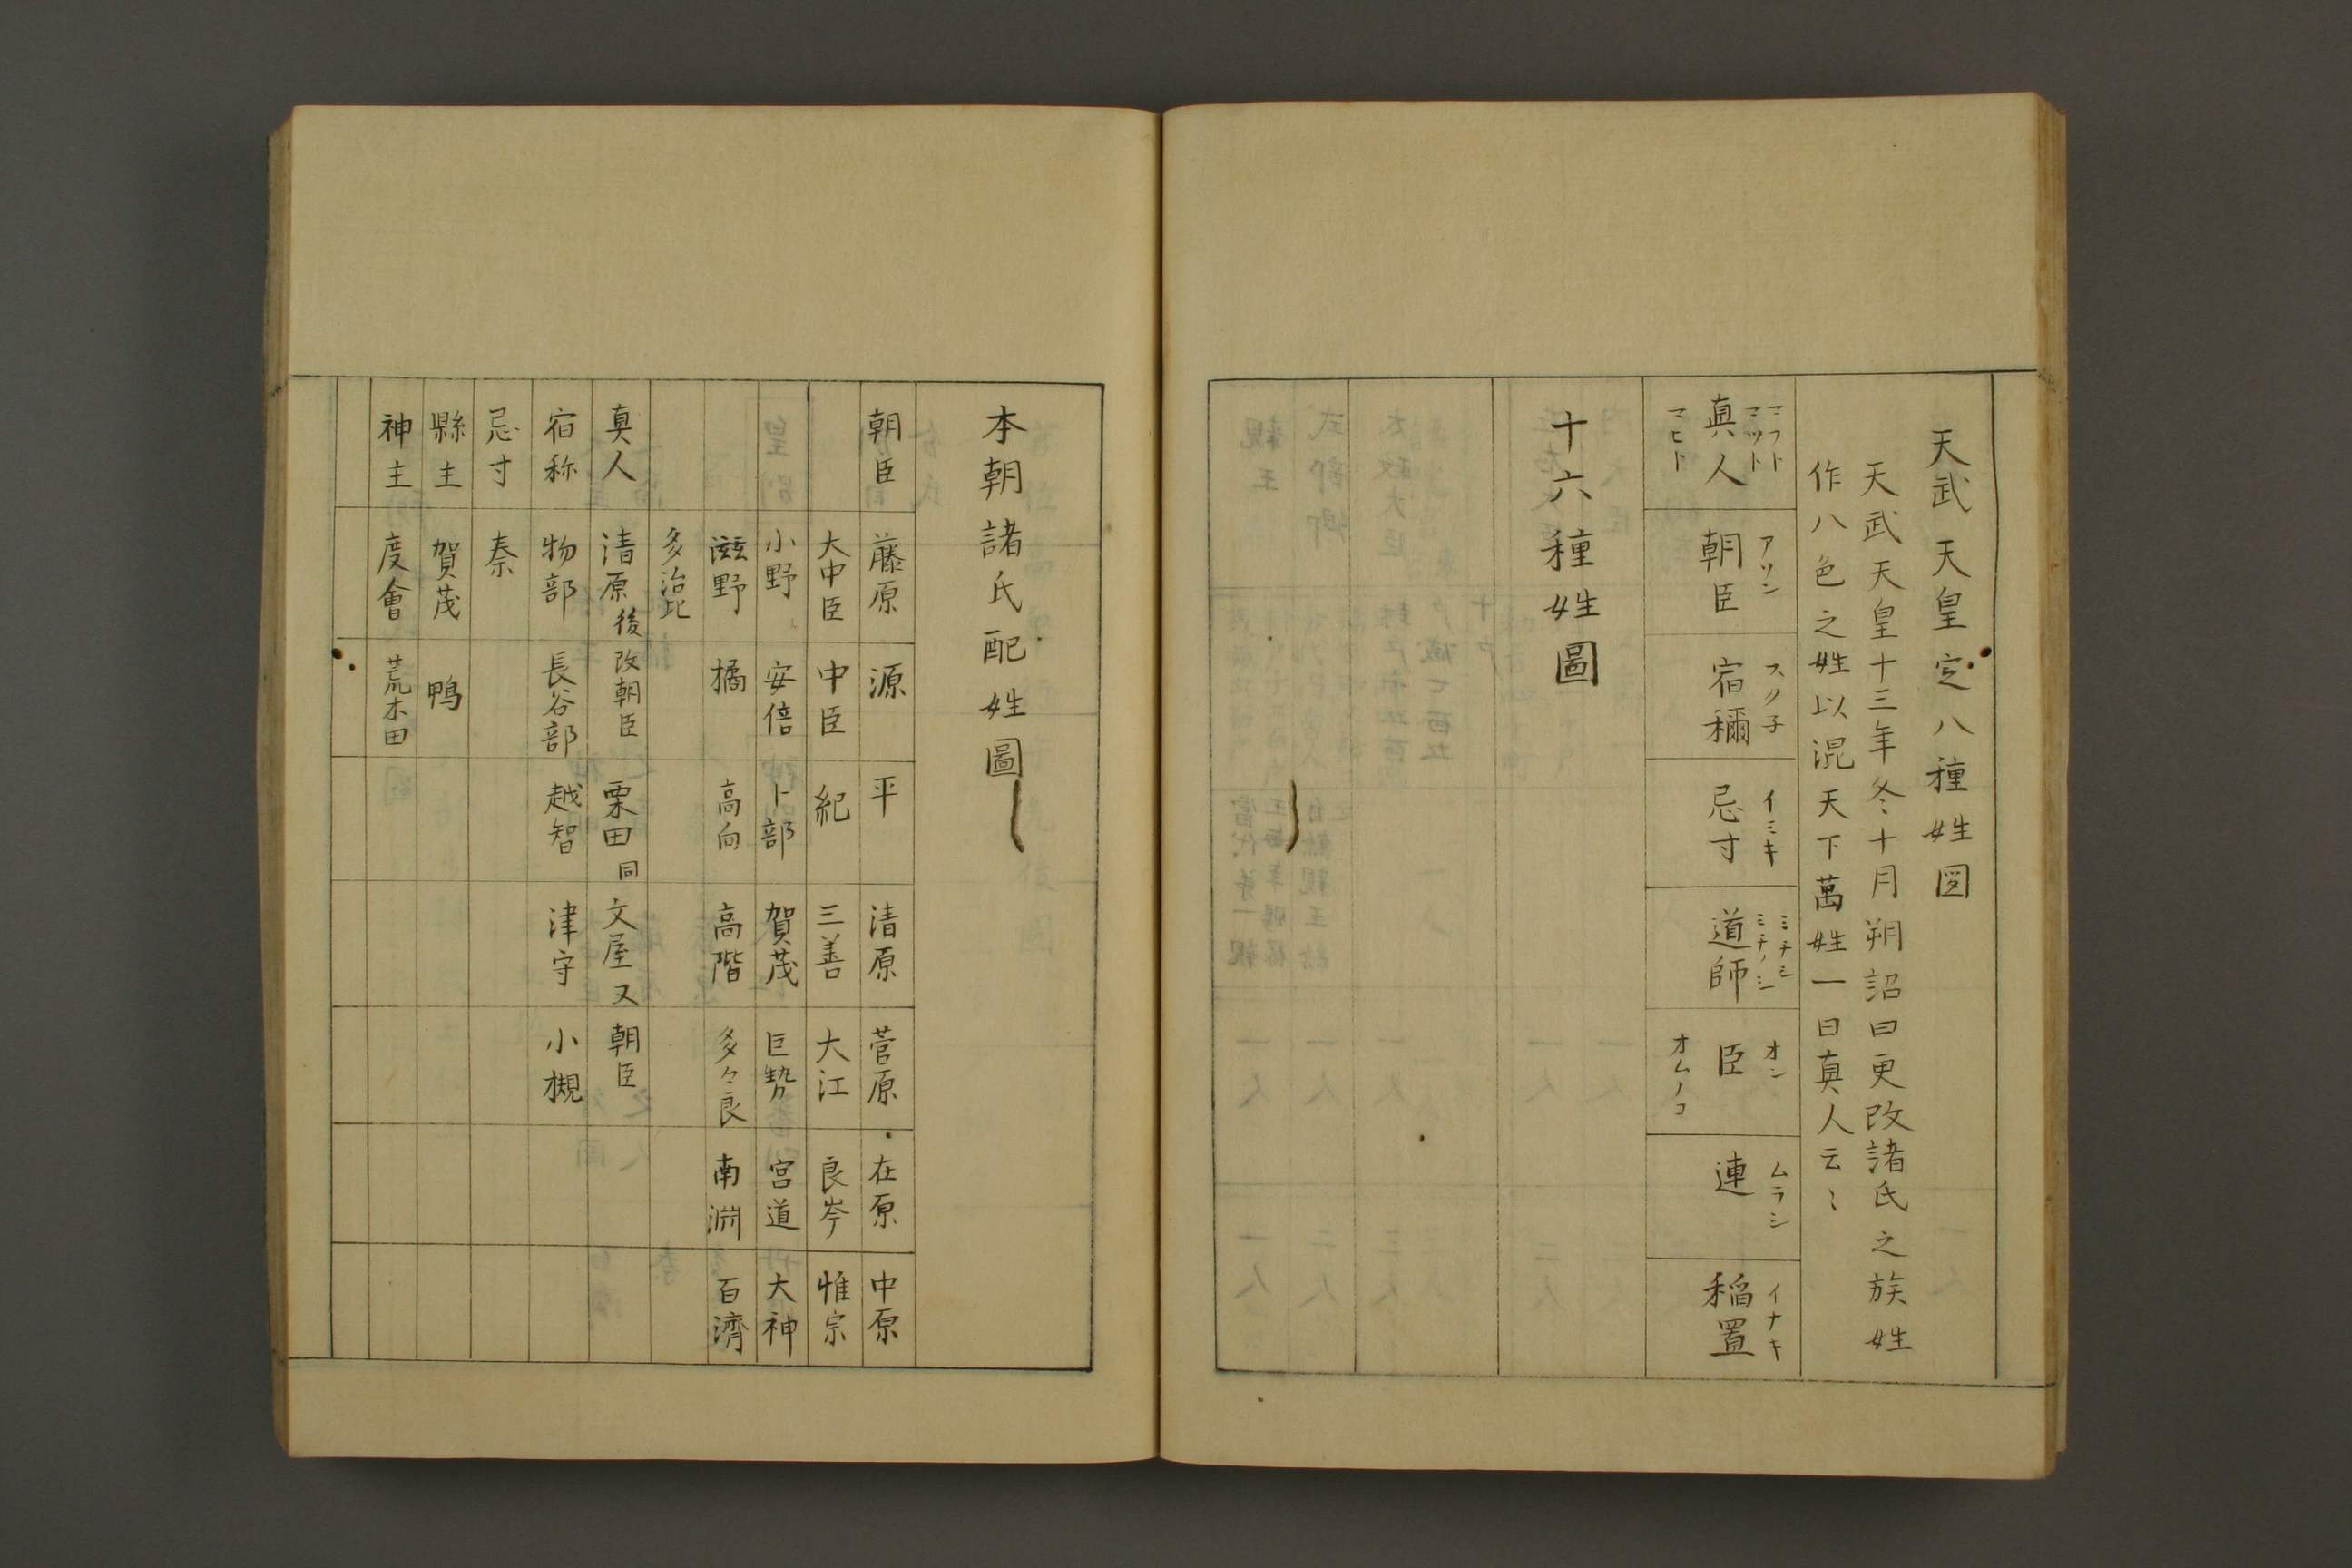 天武天皇定八種姓図
天武天皇十三年冬十月朔詔曰更改諸氏之族姓
作八色之姓以混天下萬姓一曰真人云〻
マフト
マツト
真人
マヒト
アソン
朝臣
スク子
宿禰
イミキ
忌寸
ミチシ
ミチノシ
道師
オン
臣
オムノコ
ムラシ
連
イナキ
稲置
十六種姓圖
本朝諸氏配姓圖
朝臣 藤原 源 平 清原 菅原 在原 中原
大中臣 中臣 紀 三善 大江 良岑 惟宗
小野 安倍 卜部 賀茂 巨勢 宮道 大神
滋野 橘 高向 高階 多々良 南淵 百濟
多治比
真人 清原後改朝臣 粟田同 文屋又朝臣
宿祢 物部 長谷部 越智 津守 小槻
忌寸 秦
縣主 賀茂 鴨
神主 度會 荒木田